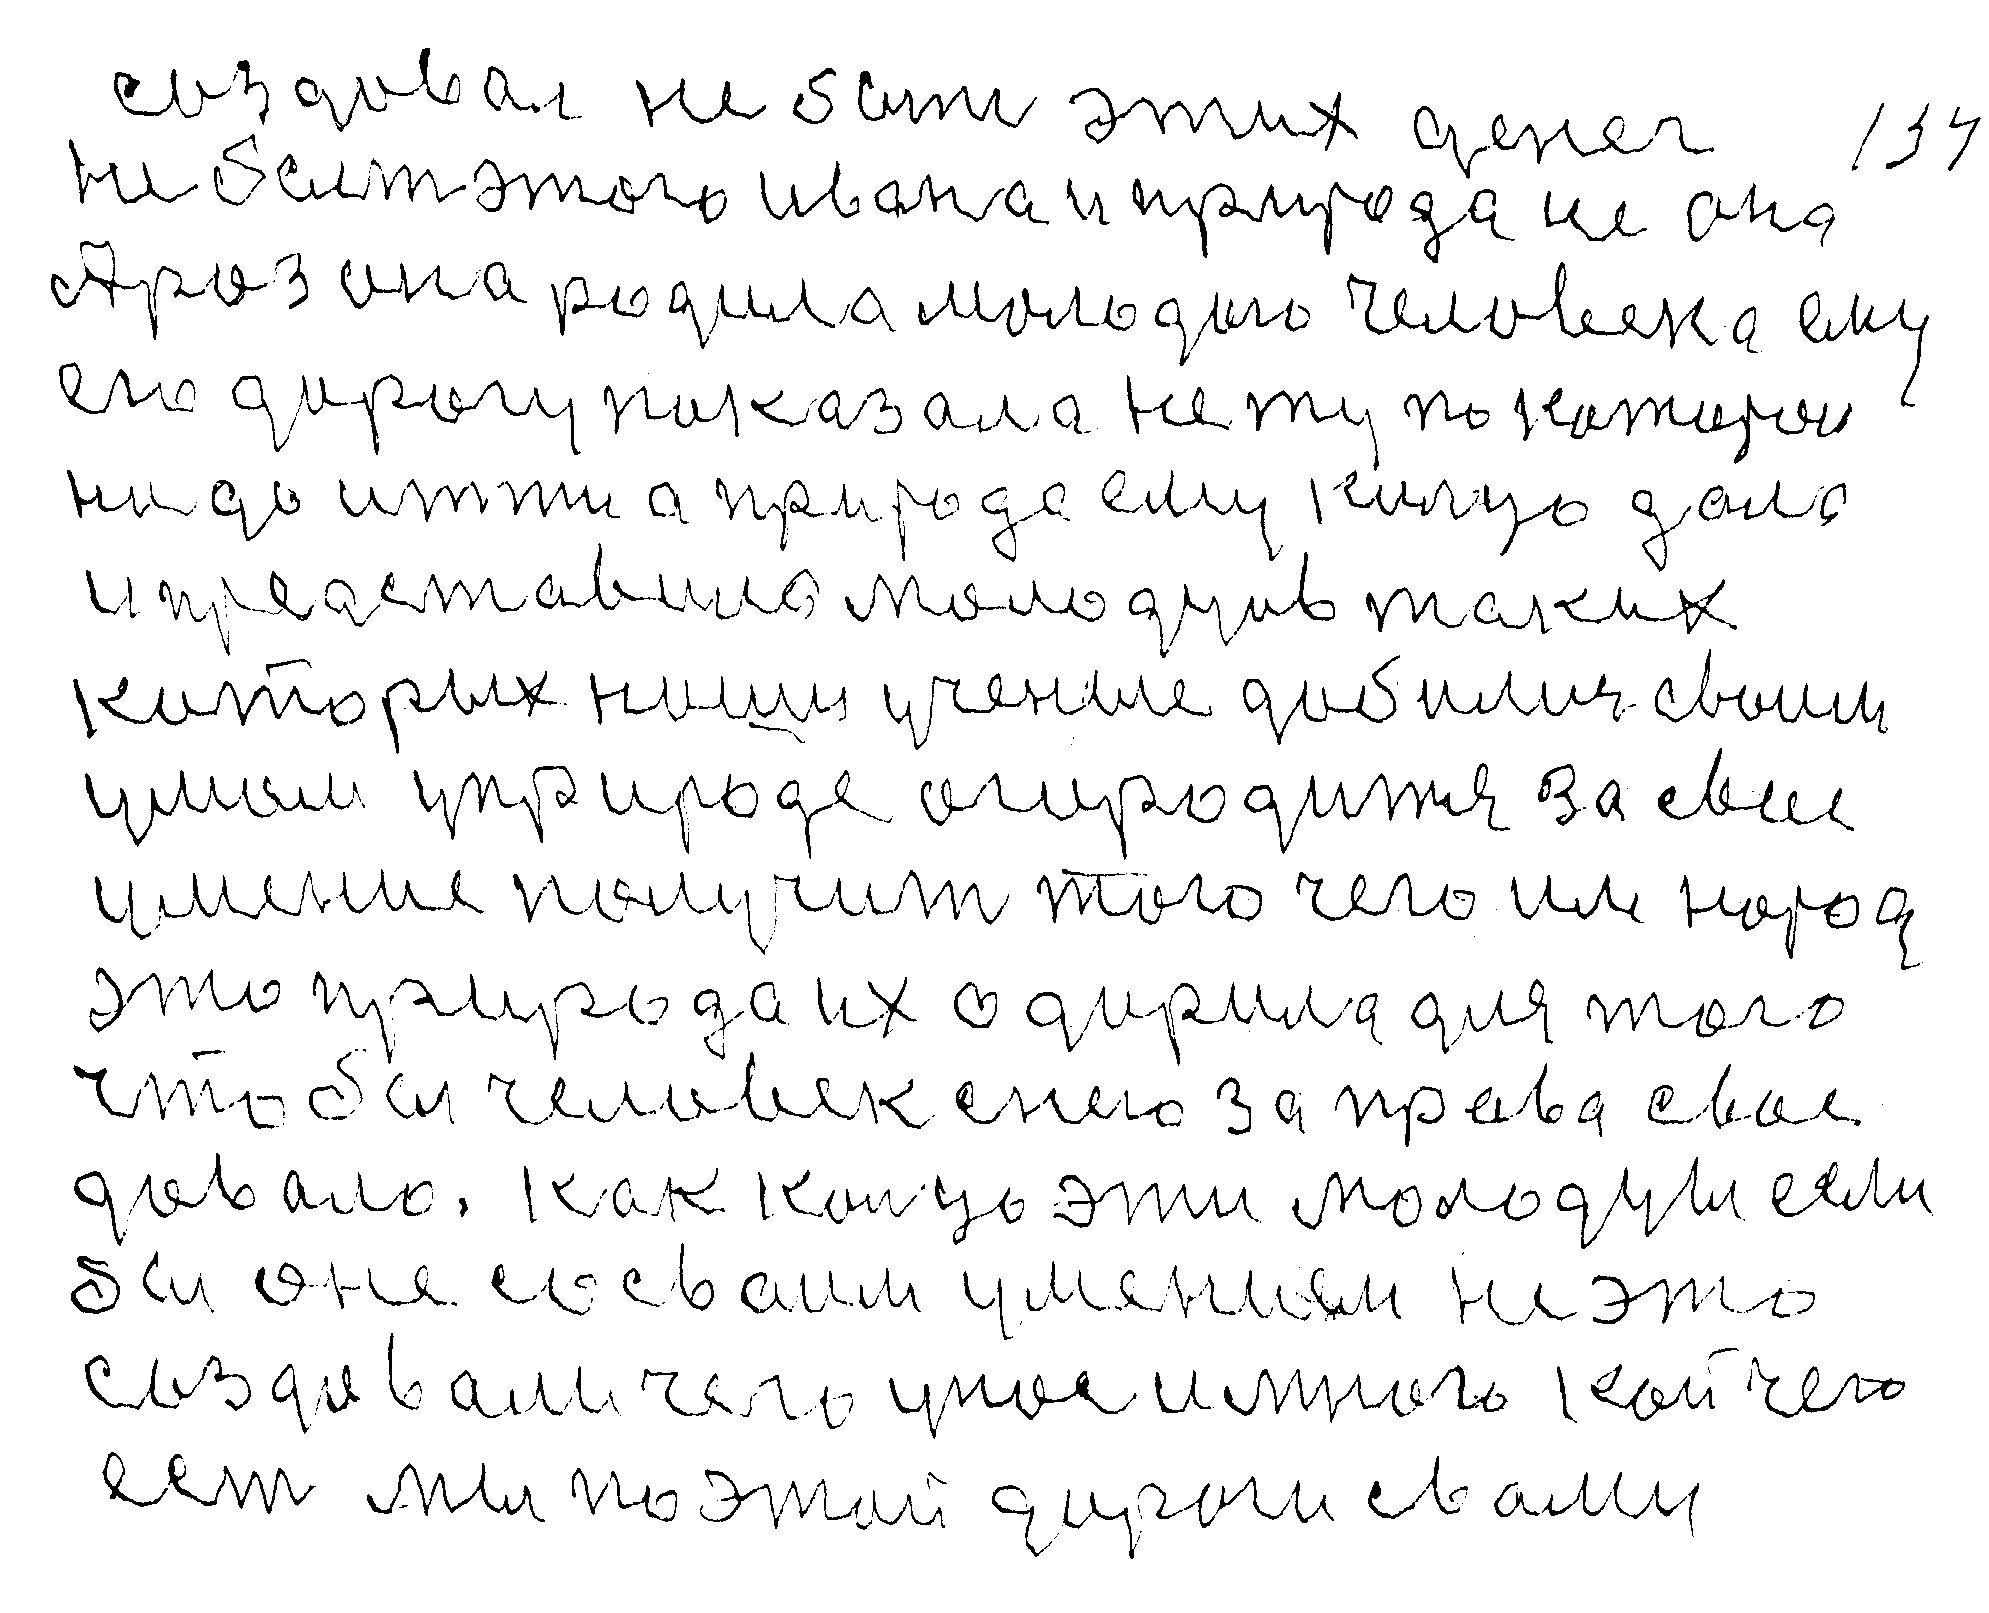 создовал не быти этих денег 134
не быт этого ивана и природа не она
Арозона родила молодого человека ему
ею дорогу показала не ту по которои
надо итти а природа ему кольцо дала
и представила молодцов таких
которых наши учение добились своим
умом у природе огородится за свое
умение получит того чего им народ
это природа их одорила для того
чтобы человек снею за права свое
довало. как кольцо эти молодцы если
бы оне со своим умением не это
создовали чего у ное и много кой чего
ест мы по этой дороги свами